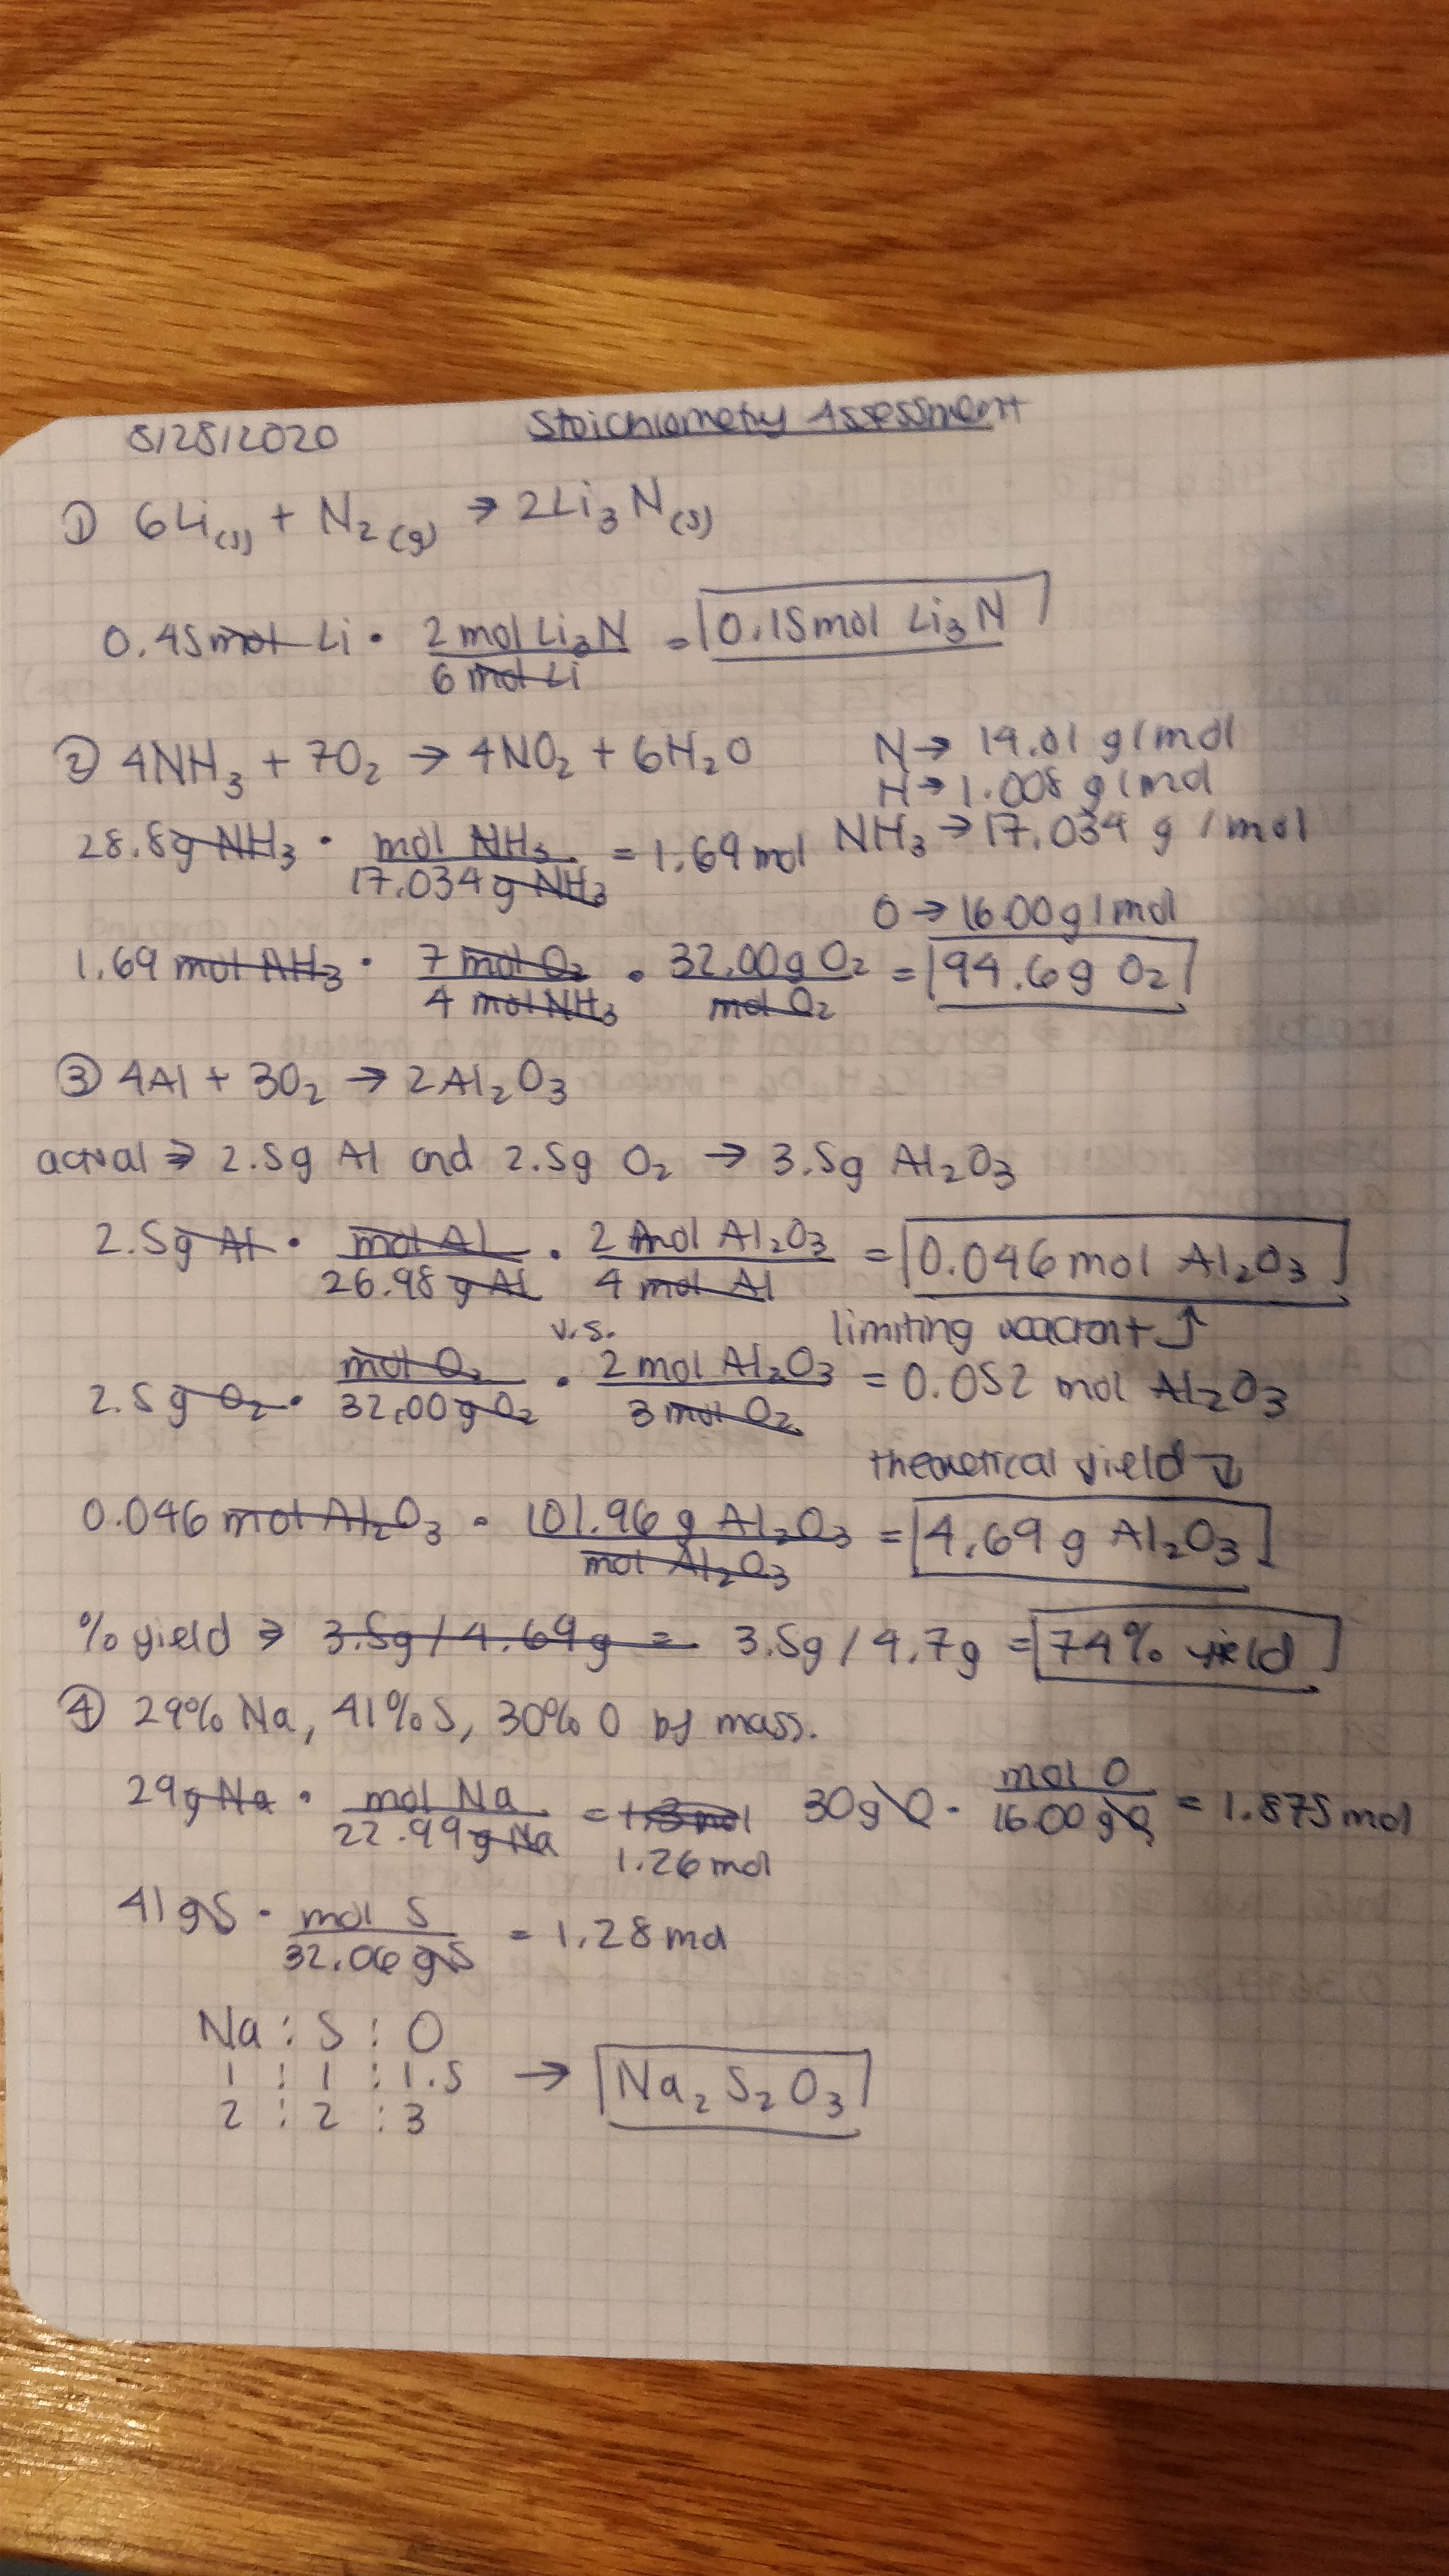 8/28/2020 Stoichiometry Assessment
① 6Li(s) + N₂(g) → 2Li₃N(s)
0.45 mol Li · 2 mol Li₃N / 6 mol Li = 0.15 mol Li₃N
② 4NH₃ + 7O₂ → 4NO₂ + 6H₂O N → 14.01 g/mol
H → 1.008 g/mol
28.8g NH₃ · mol NH₃ / 17.034 g NH₃ = 1.69 mol NH₃ → 17.034 g/mol
O → 16.00 g/mol
1.69 mol NH₃ · 7 mol O₂ / 4 mol NH₃ · 32.00g O₂ / mol O₂ = 94.6g O₂
③ 4Al + 3O₂ → 2Al₂O₃
actual ⇒ 2.5g Al and 2.5g O₂ → 3.5g Al₂O₃
2.5g Al · mol Al / 26.98 g Al · 2 mol Al₂O₃ / 4 mol Al = 0.046 mol Al₂O₃
v.s. limiting reactant ↑
2.5g O₂ · mol O₂ / 32.00g O₂ · 2 mol Al₂O₃ / 3 mol O₂ = 0.052 mol Al₂O₃
theoretical yield ↓
0.046 mol Al₂O₃ · 101.96 g Al₂O₃ / mol Al₂O₃ = 4.69 g Al₂O₃
% yield ⇒ 3.5g / 4.69g = 3.5g / 4.7g = 74% yield
④ 29% Na, 41% S, 30% O by mass.
29g Na · mol Na / 22.99g Na = 1.3 mol 30g O · mol O / 16.00 g O = 1.875 mol
1.26 mol
41 g S · mol S / 32.06 g S = 1.28 mol
Na : S : O
1 : 1 : 1.5 → Na₂S₂O₃
2 : 2 : 3